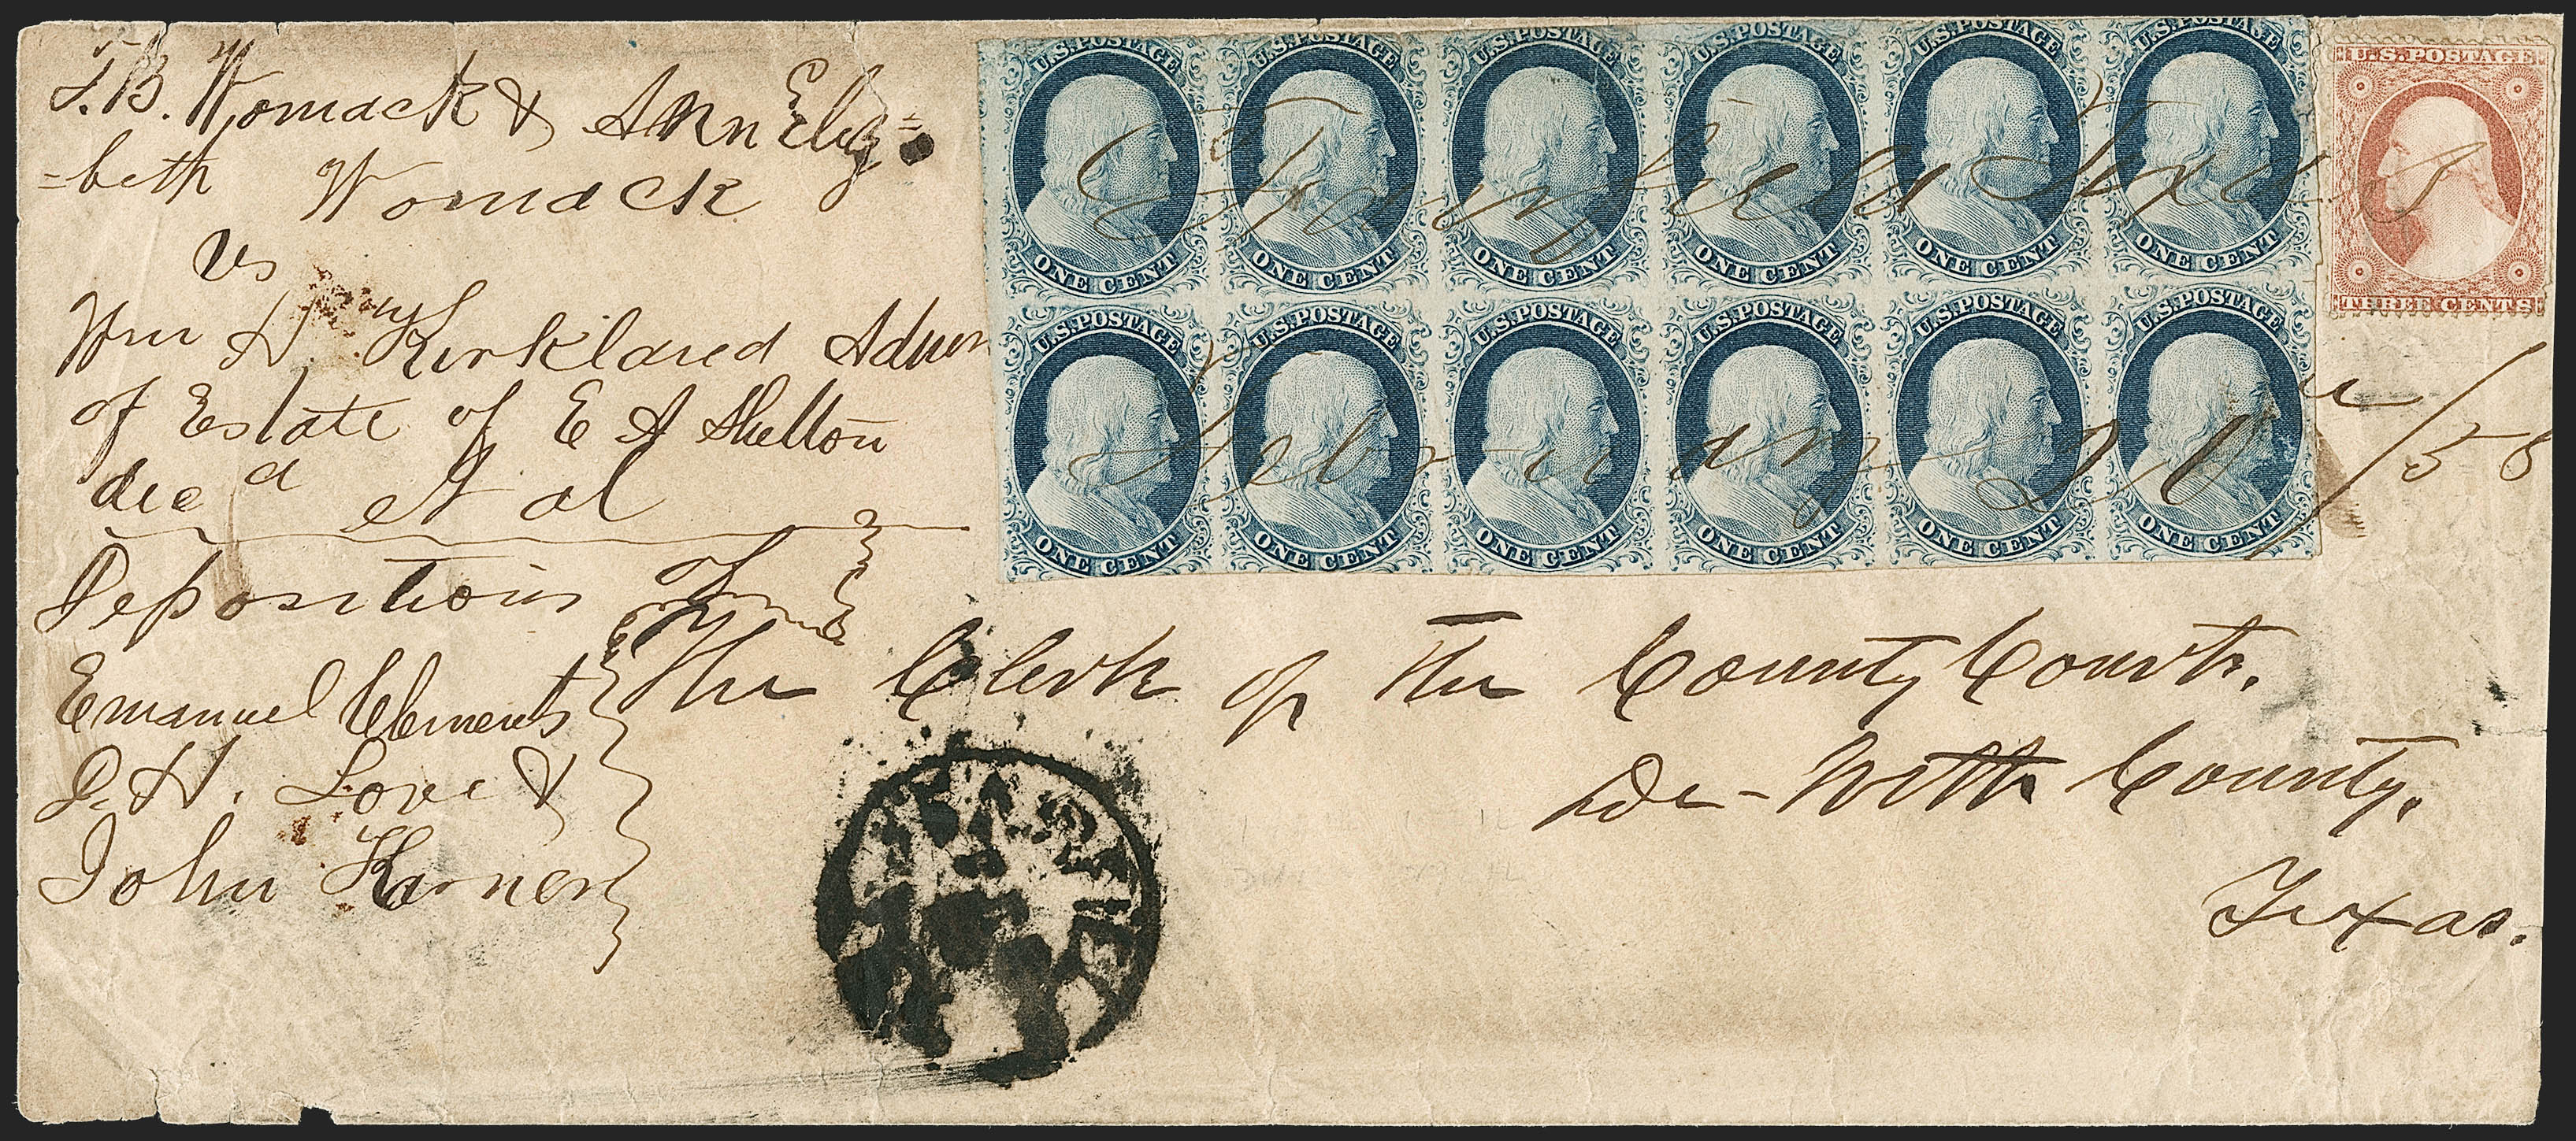 T. B. Womack & Ann Eliz=
=beth Womack
vs
Wm H. Kirkland Admr
of Estate of E A Shelton
decd et al
Depositions of
Emanuel Clements
D. H. Love &
John Karner
U.S. POSTAGE U.S. POSTAGE U.S. POSTAGE U.S. POSTAGE U.S. POSTAGE U.S. POSTAGE
ONE CENT ONE CENT ONE CENT ONE CENT ONE CENT ONE CENT
U.S. POSTAGE U.S. POSTAGE U.S. POSTAGE U.S. POSTAGE U.S. POSTAGE U.S. POSTAGE
ONE CENT ONE CENT ONE CENT ONE CENT ONE CENT ONE CENT
U.S. POSTAGE
THREE CENTS
Texas
February 20 /58
The Clerk of the County Court.
De-Witt County.
Texas.